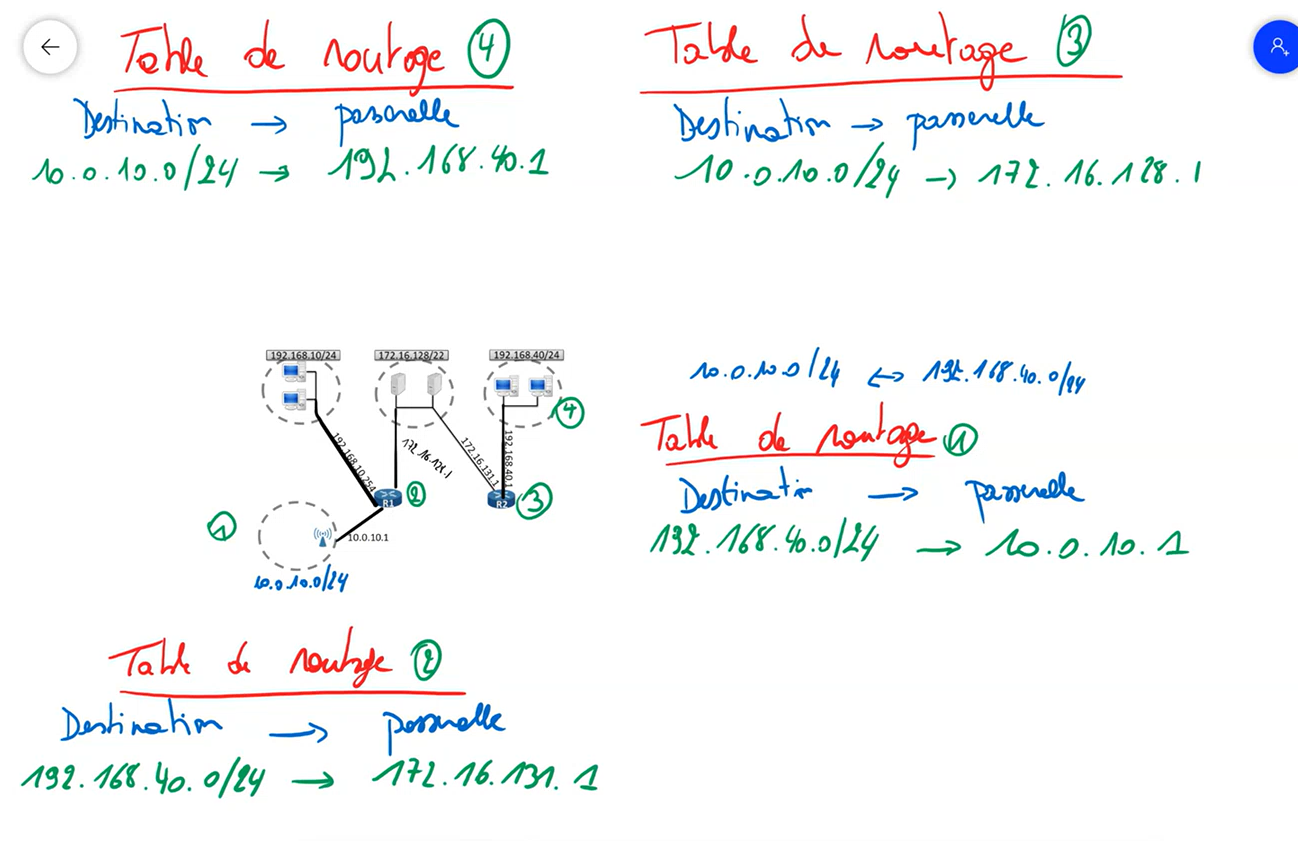 Table de routage 4
Destination → passerelle
10.0.10.0/24 → 192.168.40.1
Table de routage 3
Destination → passerelle
10.0.10.0/24 → 172.16.128.1
192.168.10/24
172.16.128/22
192.168.40/24
4
192.168.10.254
172.16.128.1
172.16.131.1
192.168.40.1
R1
2
R2
3
1
10.0.10.1
10.0.10.0/24
10.0.10.0/24 ↔ 192.168.40.0/24
Table de routage 1
Destination → passerelle
192.168.40.0/24 → 10.0.10.1
Table de routage 2
Destination → passerelle
192.168.40.0/24 → 172.16.131.1